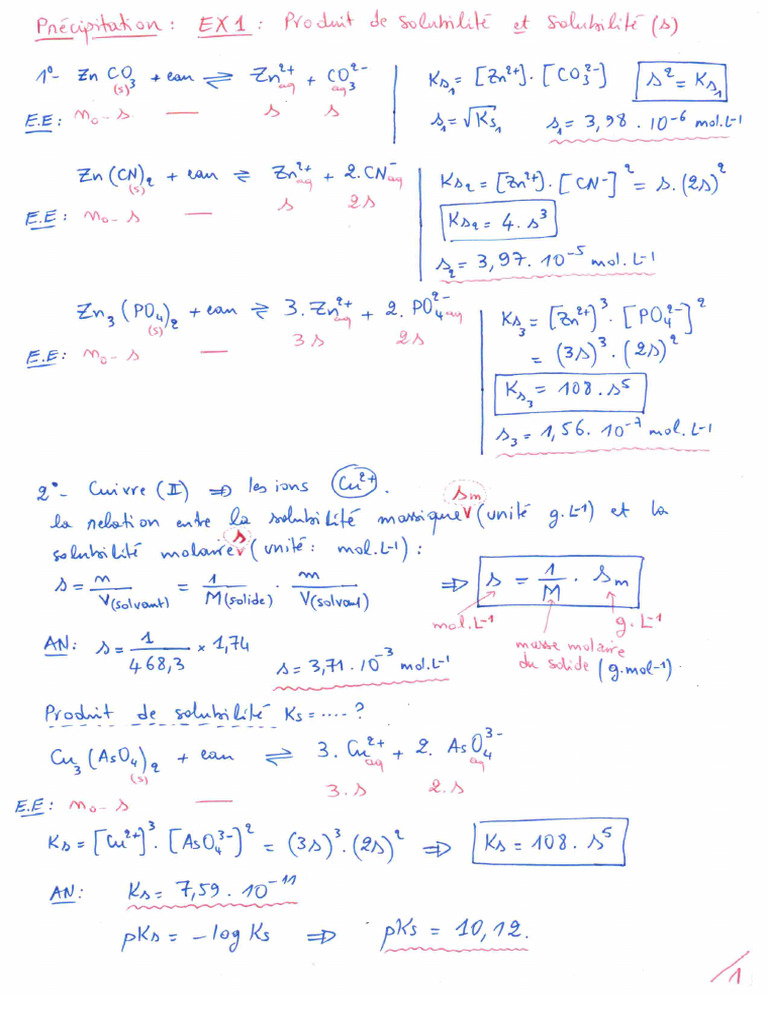 Précipitation : EX1 : Produit de solubilité et solubilité (s)
1°- ZnCO3 (s) + eau ⇌ Zn2+ aq + CO3 2- aq
E.E : n0 - s — s s
Ks1 = [Zn2+] . [CO3 2-] s² = Ks1
s1 = √Ks1 s1 = 3,98 . 10^-6 mol.L-1
Zn(CN)2 (s) + eau ⇌ Zn2+ aq + 2.CN- aq
E.E : n0 - s — s 2s
Ks2 = [Zn2+] . [CN-]² = s.(2s)²
Ks2 = 4 . s³
s2 = 3,97 . 10^-5 mol.L-1
Zn3(PO4)2 (s) + eau ⇌ 3.Zn2+ aq + 2.PO4 2- aq
E.E : n0 - s — 3s 2s
Ks3 = [Zn2+]³ . [PO4 2-]²
= (3s)³ . (2s)²
Ks3 = 108 . s⁵
s3 = 1,56 . 10^-7 mol.L-1
2°- Cuivre (II) ⇒ les ions Cu2+ .
la relation entre la solubilité massique sm (unité g.L-1) et la
solubilité molaire s (unité : mol.L-1) :
s = n / V(solvant) = 1 / M(solide) . m / V(solvant) ⇒ s = 1/M . sm
mol.L-1 masse molaire du solide (g.mol-1) g.L-1
AN: s = 1 / 468,3 × 1,74 s = 3,71 . 10^-3 mol.L-1
Produit de solubilité Ks = .... ?
Cu3(AsO4)2 (s) + eau ⇌ 3.Cu2+ aq + 2.AsO4 3- aq
E.E : n0 - s — 3.s 2.s
Ks = [Cu2+]³ . [AsO4 3-]² = (3s)³.(2s)² ⇒ Ks = 108 . s⁵
AN: Ks = 7,59 . 10^-11
pKs = - log Ks ⇒ pKs = 10,12.
/1